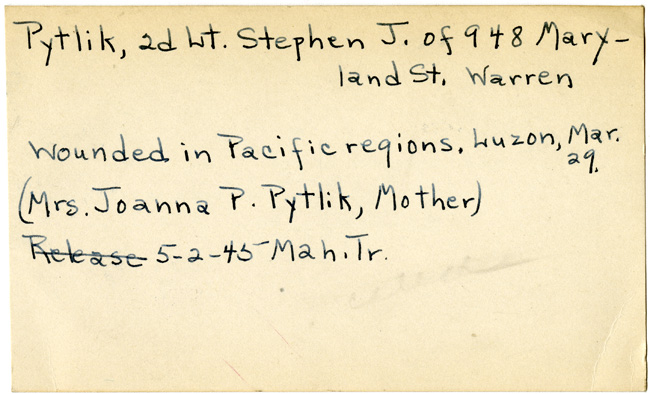 Pytlik, 2d Lt. Stephen J. of 948 Mary-
land St. Warren
Wounded in Pacific regions. Luzon, Mar.
29.
(Mrs. Joanna P. Pytlik, Mother)
Release 5-2-45 Mah. Tr.